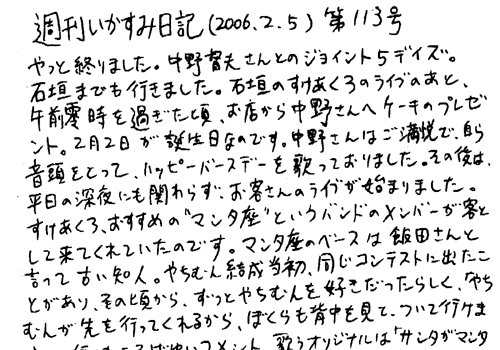 週刊いかすみ日記(2006.2.5) 第113号
やっと終りました。中野督夫さんとのジョイント5デイズ。
石垣までも行きました。石垣のすけあくろのライブのあと、
午前零時を過ぎた頃、お店から中野さんへケーキのプレゼ
ント。2月2日が誕生日なのです。中野さんはご満悦で、自ら
音頭をとって、ハッピーバースデーを歌っておりました。その後は、
平日の深夜にも関わらず、お客さんのライブが始まりました。
すけあくろ、おすすめの"マンタ座"というバンドのメンバーが客と
して来てくれていたのです。マンタ座のベースは飯田さんと
言って古い知人。やちむん結成当初、同じコンテストに出たこ
とがあり、その頃から、ずっとやちむんを好きだったらしく、「やち
むんが先を行ってくれるから、ぼくらも背中を見て、ついて行けま
歌うオリジナルは「サンタがマンタ